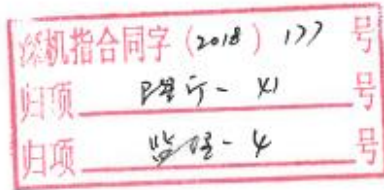 深机指合同字(2018)177号
归项 - 41 号
归项 监理-4 号